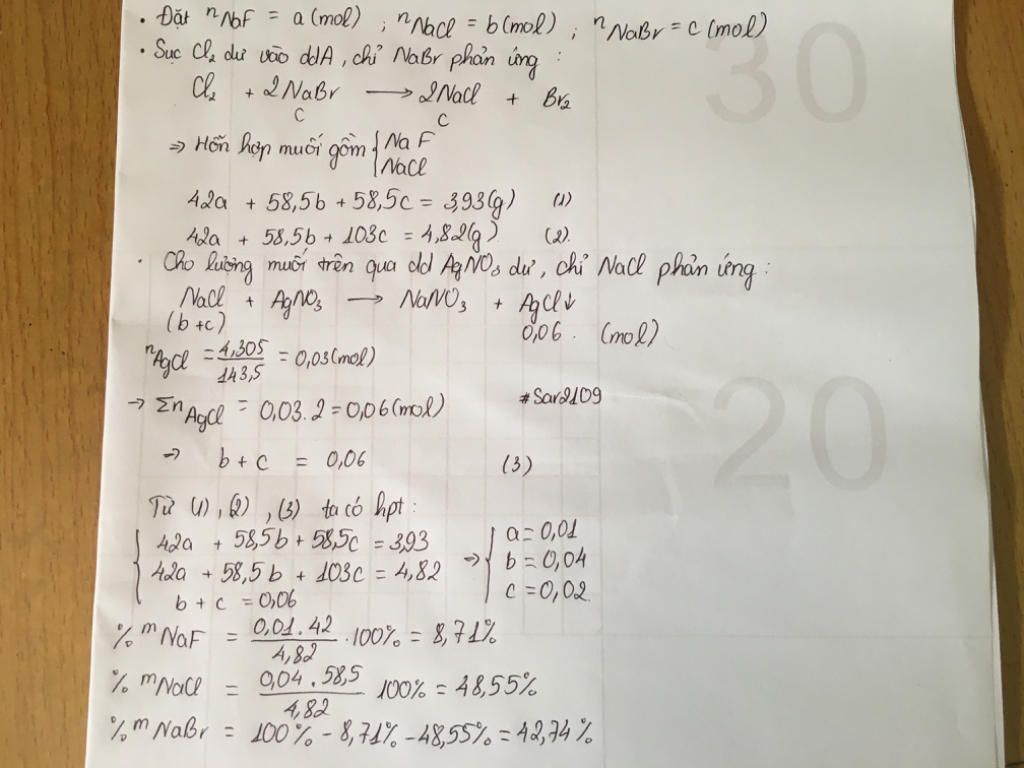 • Đặt nNaF = a (mol) ; nNaCl = b (mol) ; nNaBr = c (mol)
• Sục Cl₂ dư vào ddA, chỉ NaBr phản ứng :
Cl₂ + 2NaBr → 2NaCl + Br₂
c c
⇒ Hỗn hợp muối gồm { NaF
NaCl
42a + 58,5b + 58,5c = 3,93(g) (1)
42a + 58,5b + 103c = 4,82(g) (2).
• Cho lượng muối trên qua dd AgNO₃ dư, chỉ NaCl phản ứng :
NaCl + AgNO₃ → NaNO₃ + AgCl↓
(b+c) 0,06 . (mol)
nAgCl = 4,305/143,5 = 0,03(mol)
→ ΣnAgCl = 0,03.2 = 0,06(mol) #Sar2109
→ b + c = 0,06 (3)
Từ (1), (2), (3) ta có hpt :
{ 42a + 58,5b + 58,5c = 3,93
42a + 58,5b + 103c = 4,82
b + c = 0,06
⇒ { a = 0,01
b = 0,04
c = 0,02.
% mNaF = 0,01.42/4,82 .100% = 8,71%
% mNaCl = 0,04.58,5/4,82 100% = 48,55%
% mNaBr = 100% - 8,71% - 48,55% = 42,74%
30
20